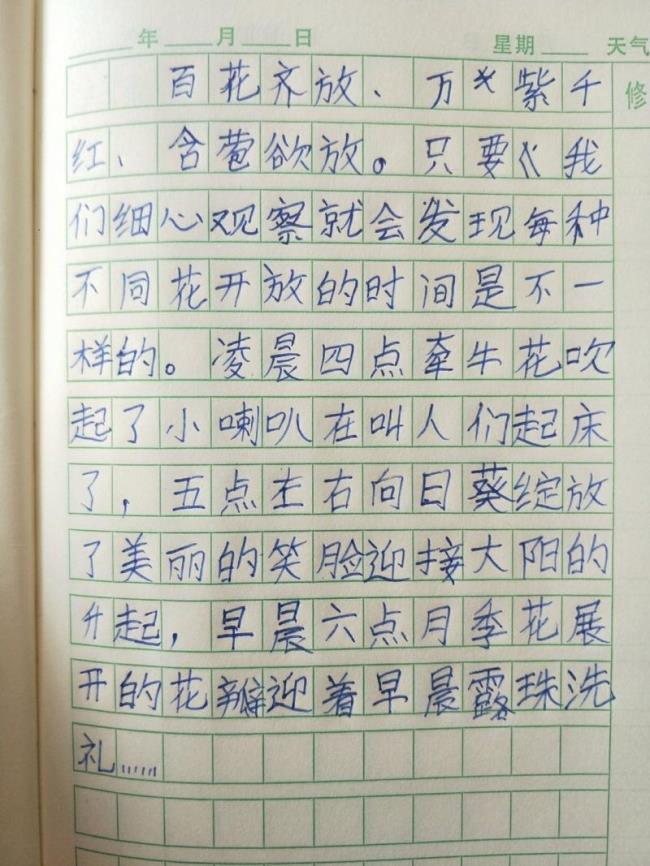 年 月 日 星期 天气
修
百花齐放、万紫千
红、含苞欲放。只要我
们细心观察就会发现每种
不同花开放的时间是不一
样的。凌晨四点牵牛花吹
起了小喇叭在叫人们起床
了，五点左右向日葵绽放
了美丽的笑脸迎接大阳的
升起，早晨六点月季花展
开的花瓣迎着早晨露珠洗
礼……